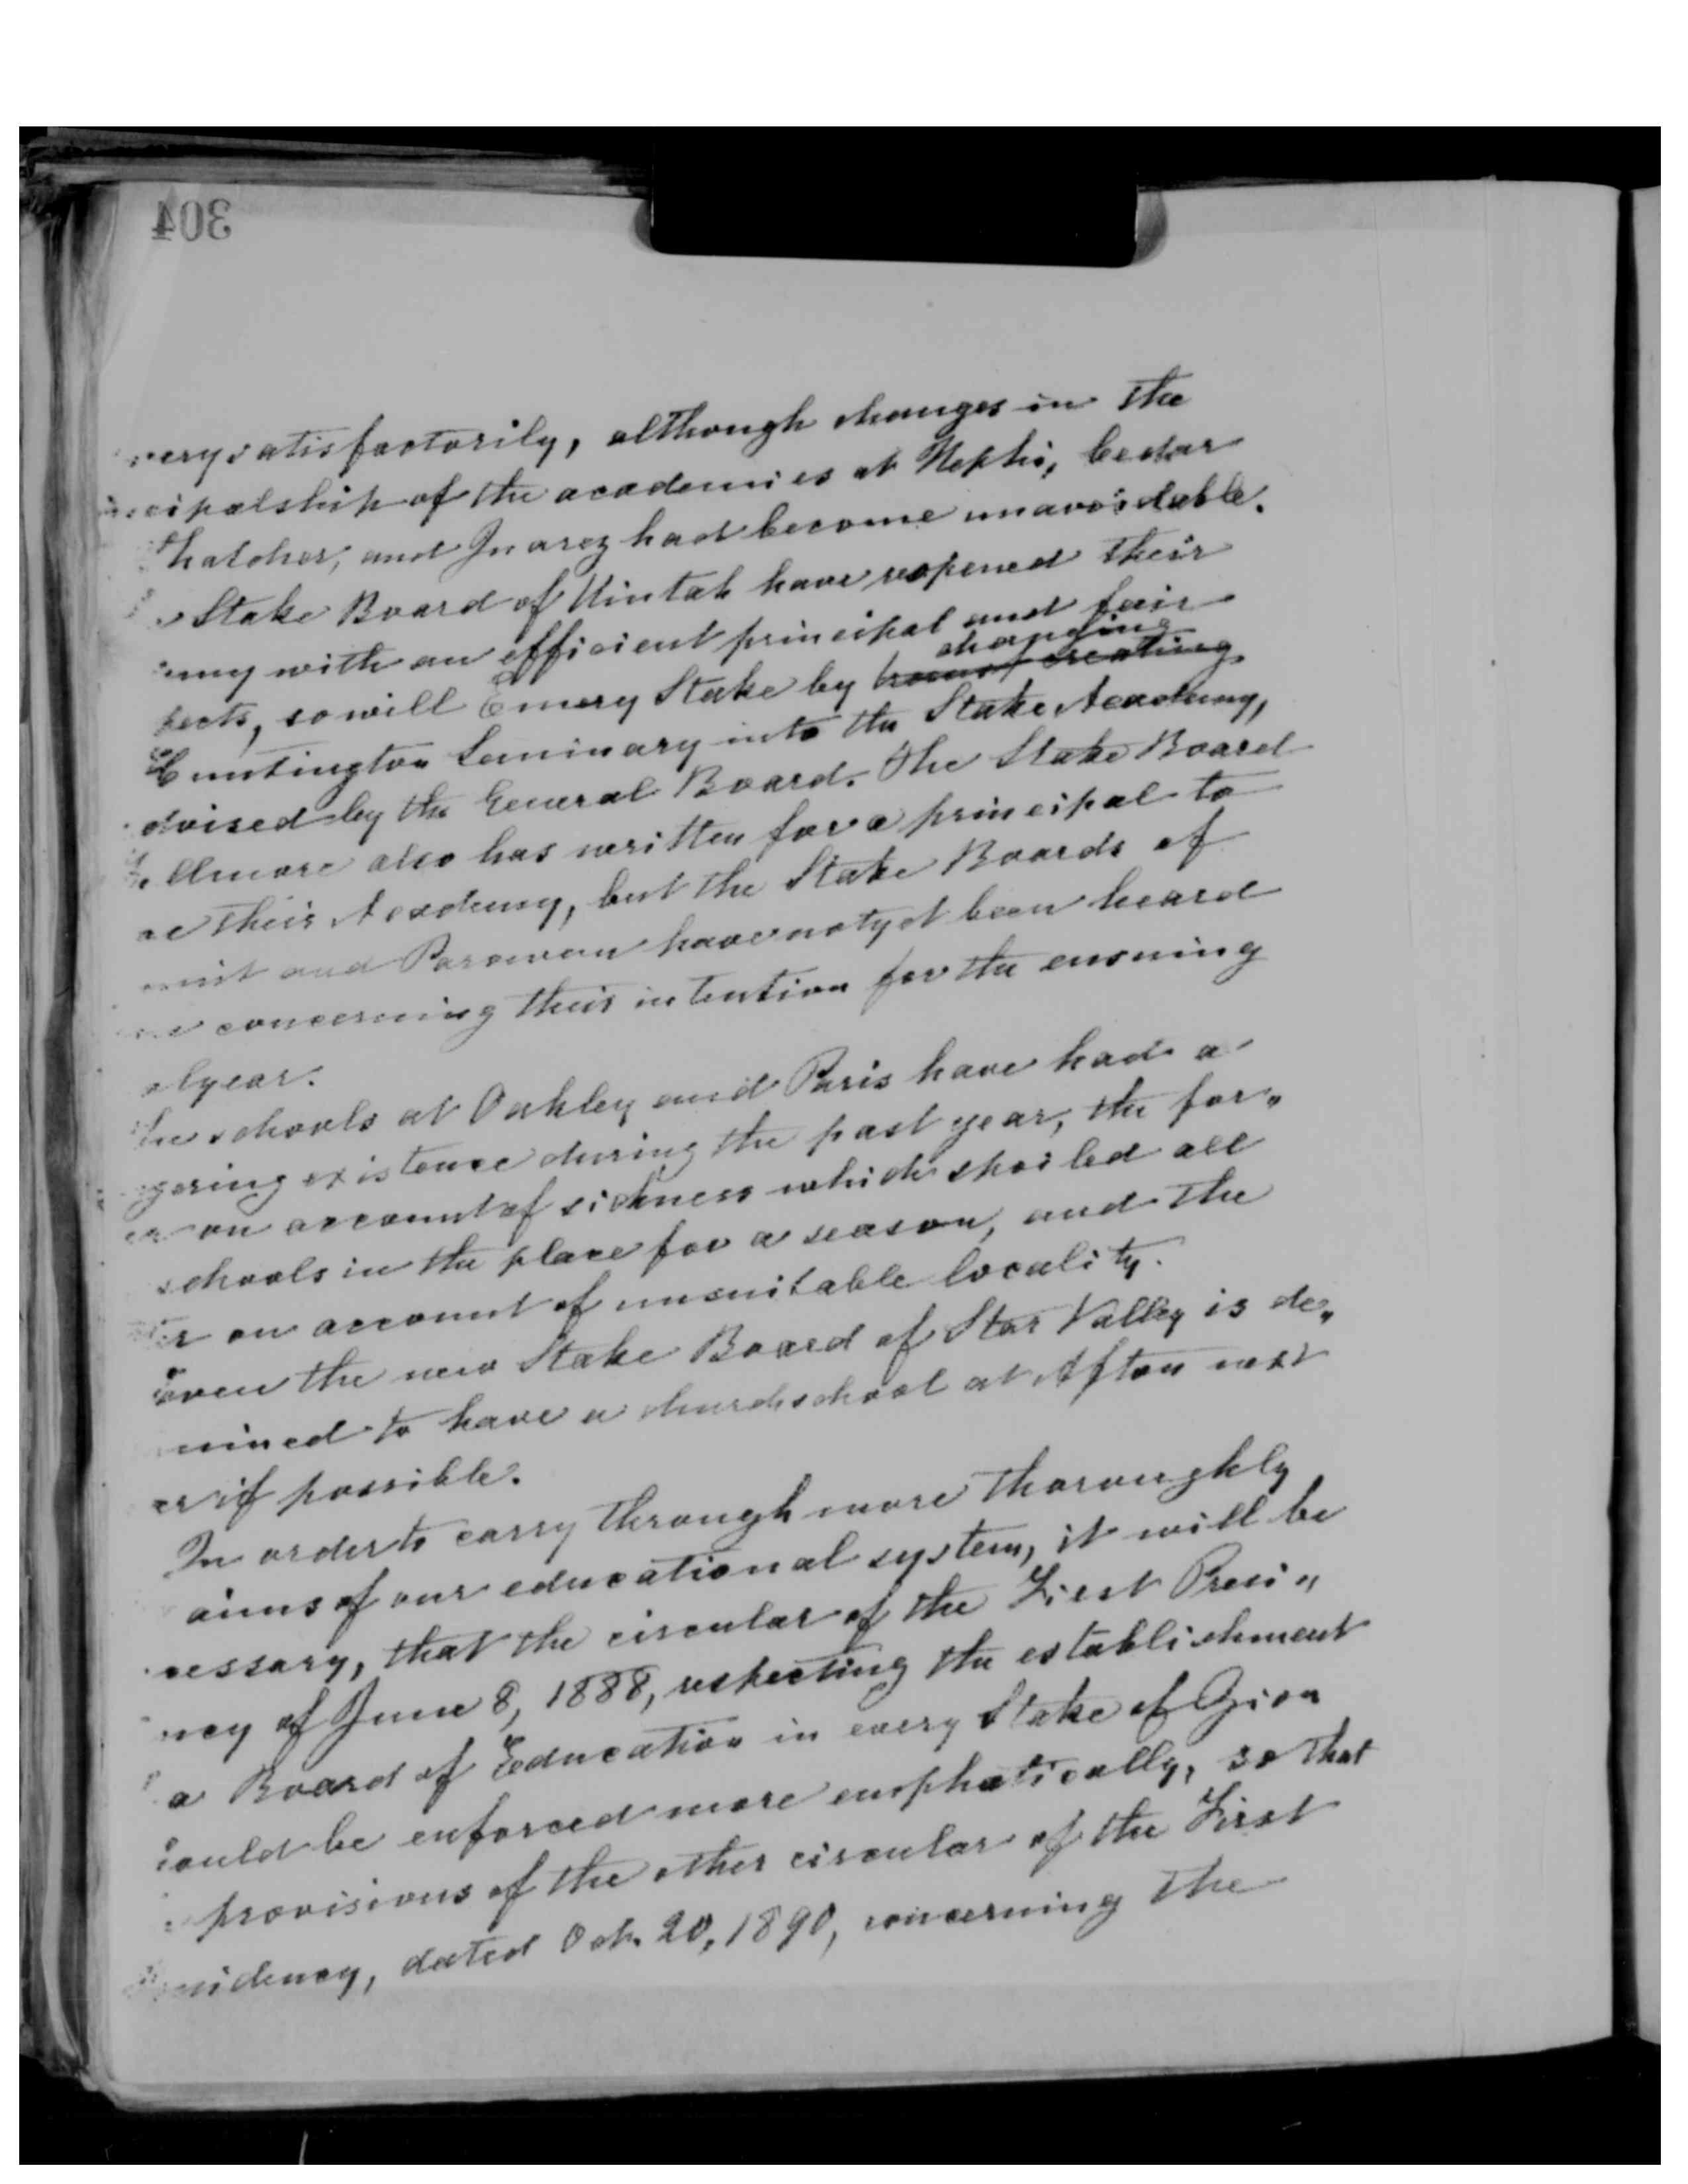 304
very satisfactorily, although changes in the
cipalship of the academies at Nephi, Cedar
Thatcher, and Juarez had become unavoidable.
Stake Board of Uintah have reopened their
emy with an efficient principal and fair
changing
pects, so will Emery Stake by creating
Huntington Seminary into the Stake Academy,
dvised by the General Board. The Stake Board
illmore also has written for a principal to
their Academy, but the Stake Boards of
mit and Parowan have not yet been heard
concerning their intention for the ensuing
l year.
The schools at Oakley and Paris have had a
gering existence during the past year, the for„
er on account of sickness which spoiled all
schools in the place for a season, and the
ter on account of unsuitable locality.
Even the new Stake Board of Star Valley is de„
mined to have a church school at Afton next
er if possible.
In order to carry through more thoroughly
aims of our educational system, it will be
cessary, that the circular of the First Presi„
ncy of June 8, 1888, respecting the establishment
a Board of Education in every Stake of Zion
could be enforced more emphatically, so that
provisions of the other circular of the First
sidency, dated Oct. 20, 1890, concerning the